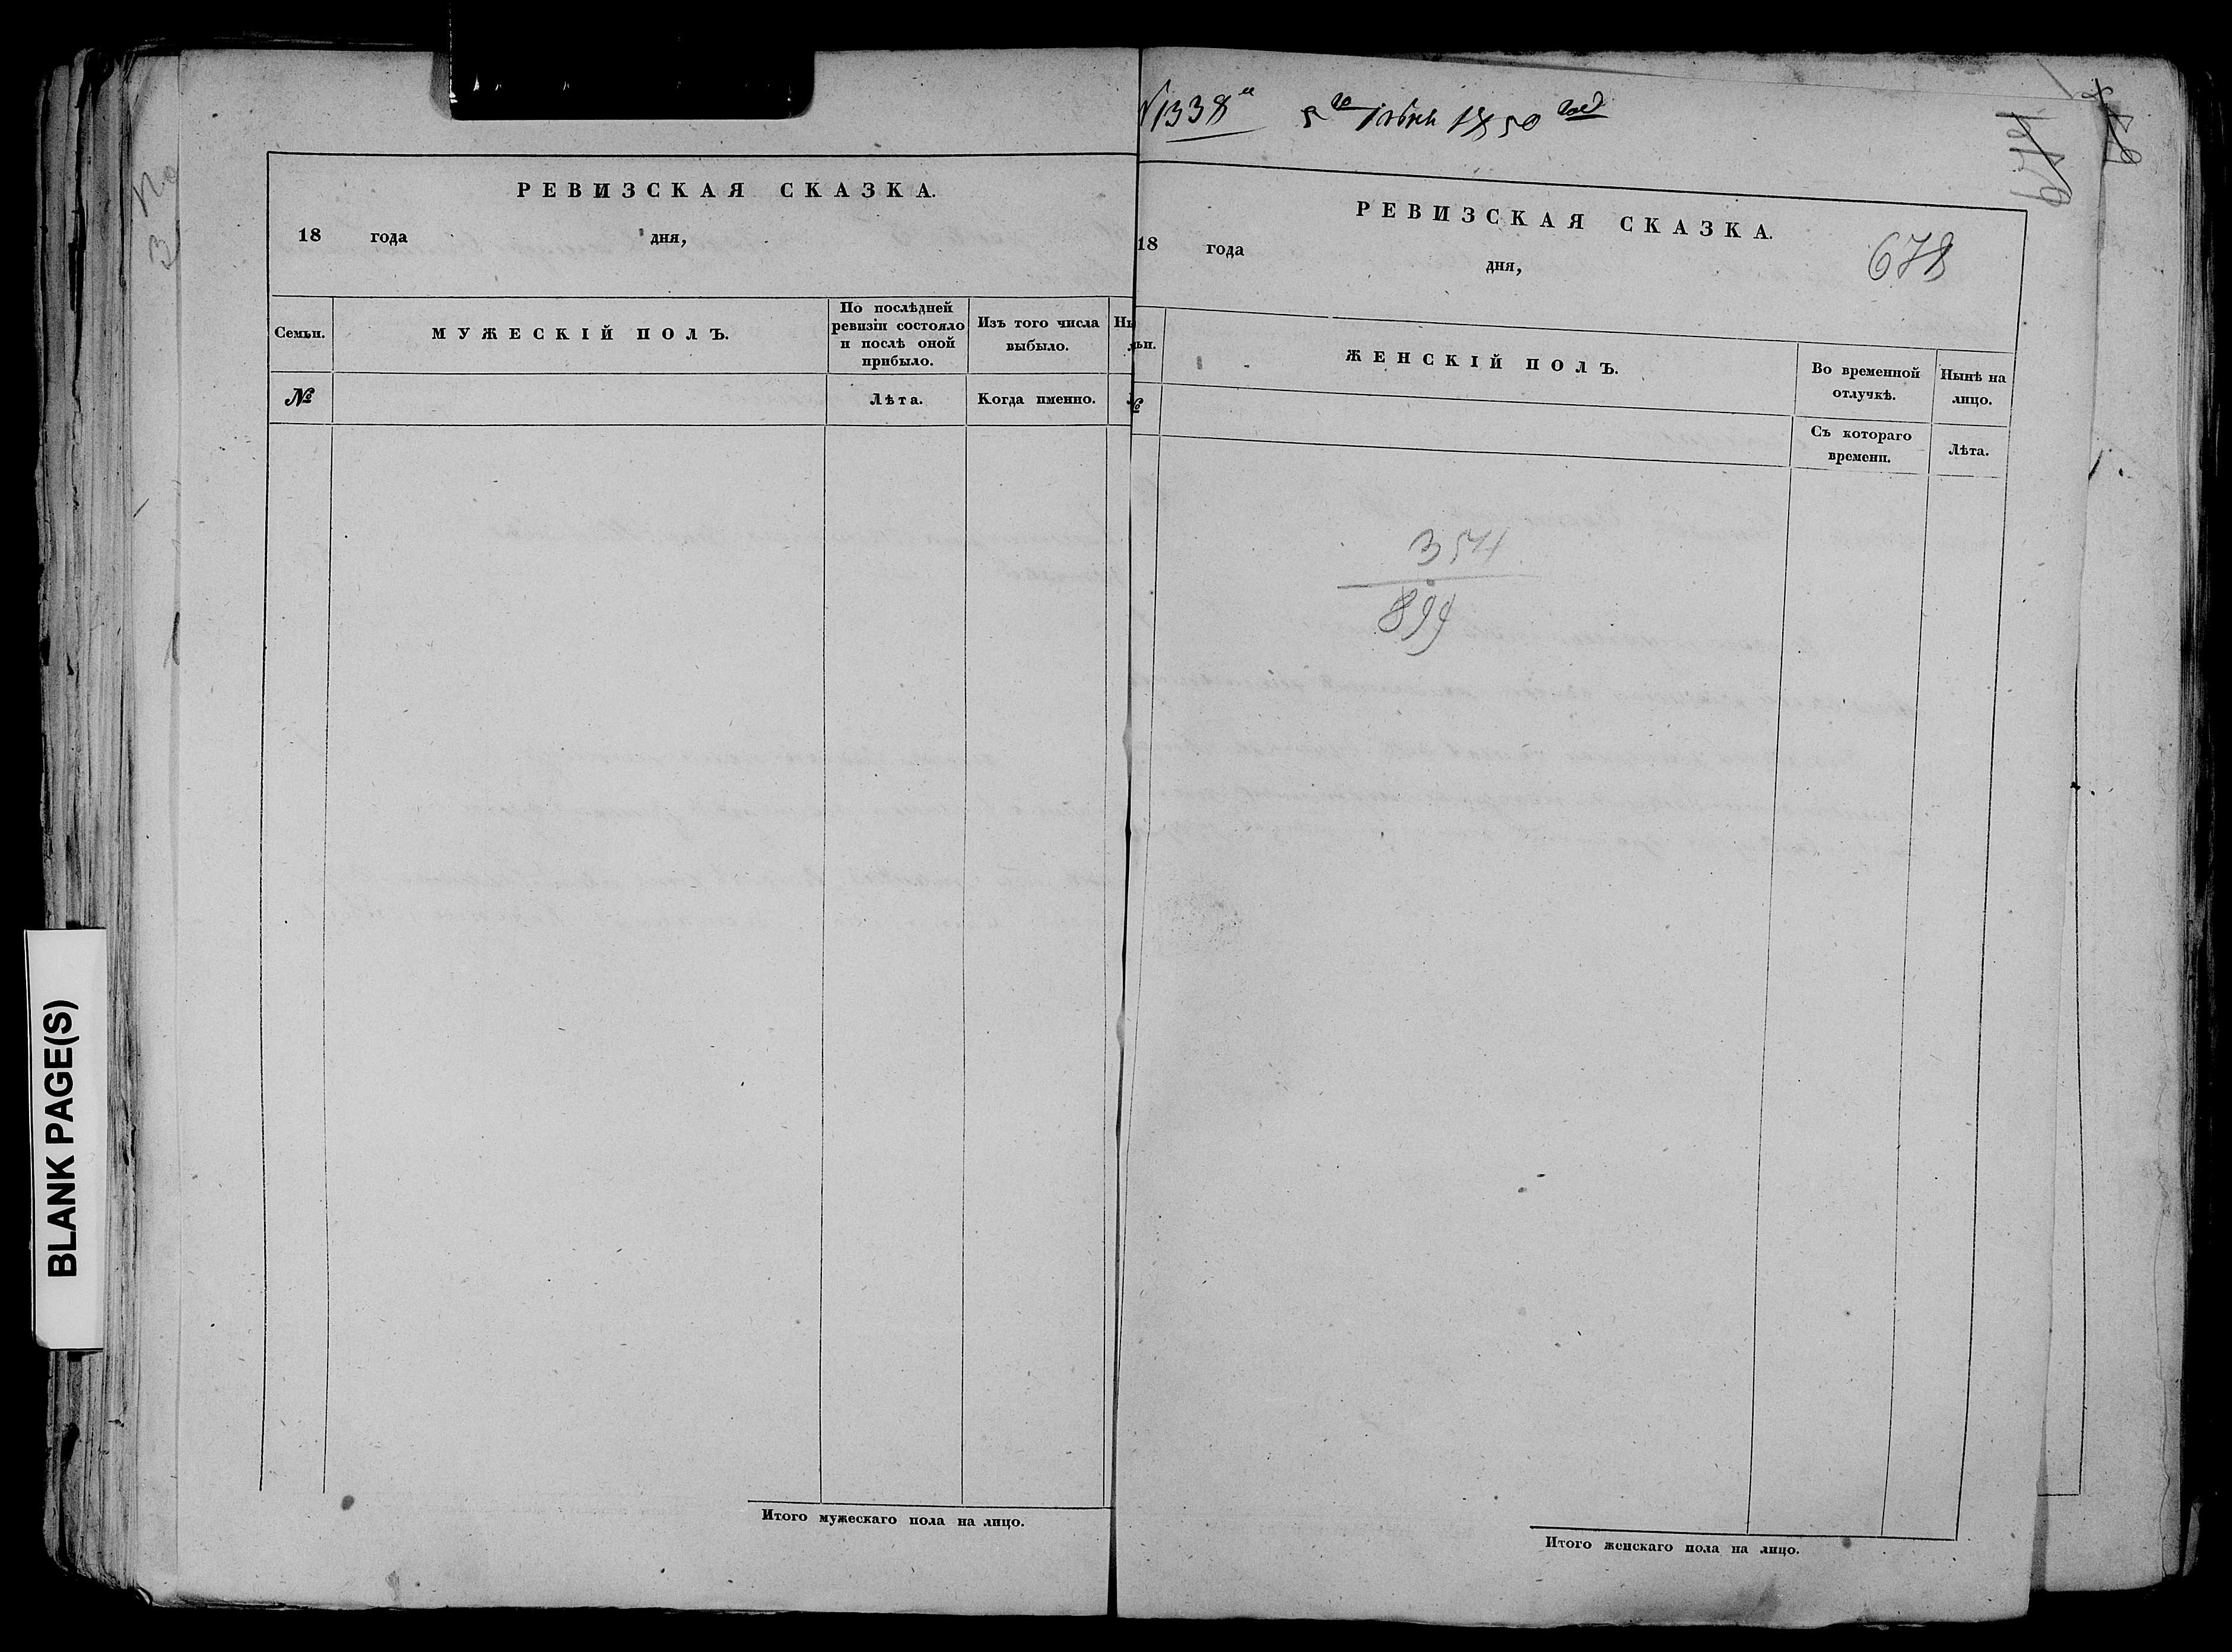 BLANK PAGE(S)
РЕВИЗСКАЯ СКАЗКА.
18 года дня,
Семьи.
МУЖЕСКІЙ ПОЛЪ.
По послѣдней
ревизіи состояло
и послѣ оной
прибыло.
Изъ того числа
выбыло.
№
Лѣта.
Когда именно.
Итого мужескаго пола на лицо.
№ 1338
5го Іюня 1850 год
РЕВИЗСКАЯ СКАЗКА.
18 года
дня,
678
ЖЕНСКІЙ ПОЛЪ.
Во временной
отлучкѣ.
Нынѣ на
лицо.
№
Съ котораго
времени.
Лѣта.
354
899
Итого женскаго пола на лицо.